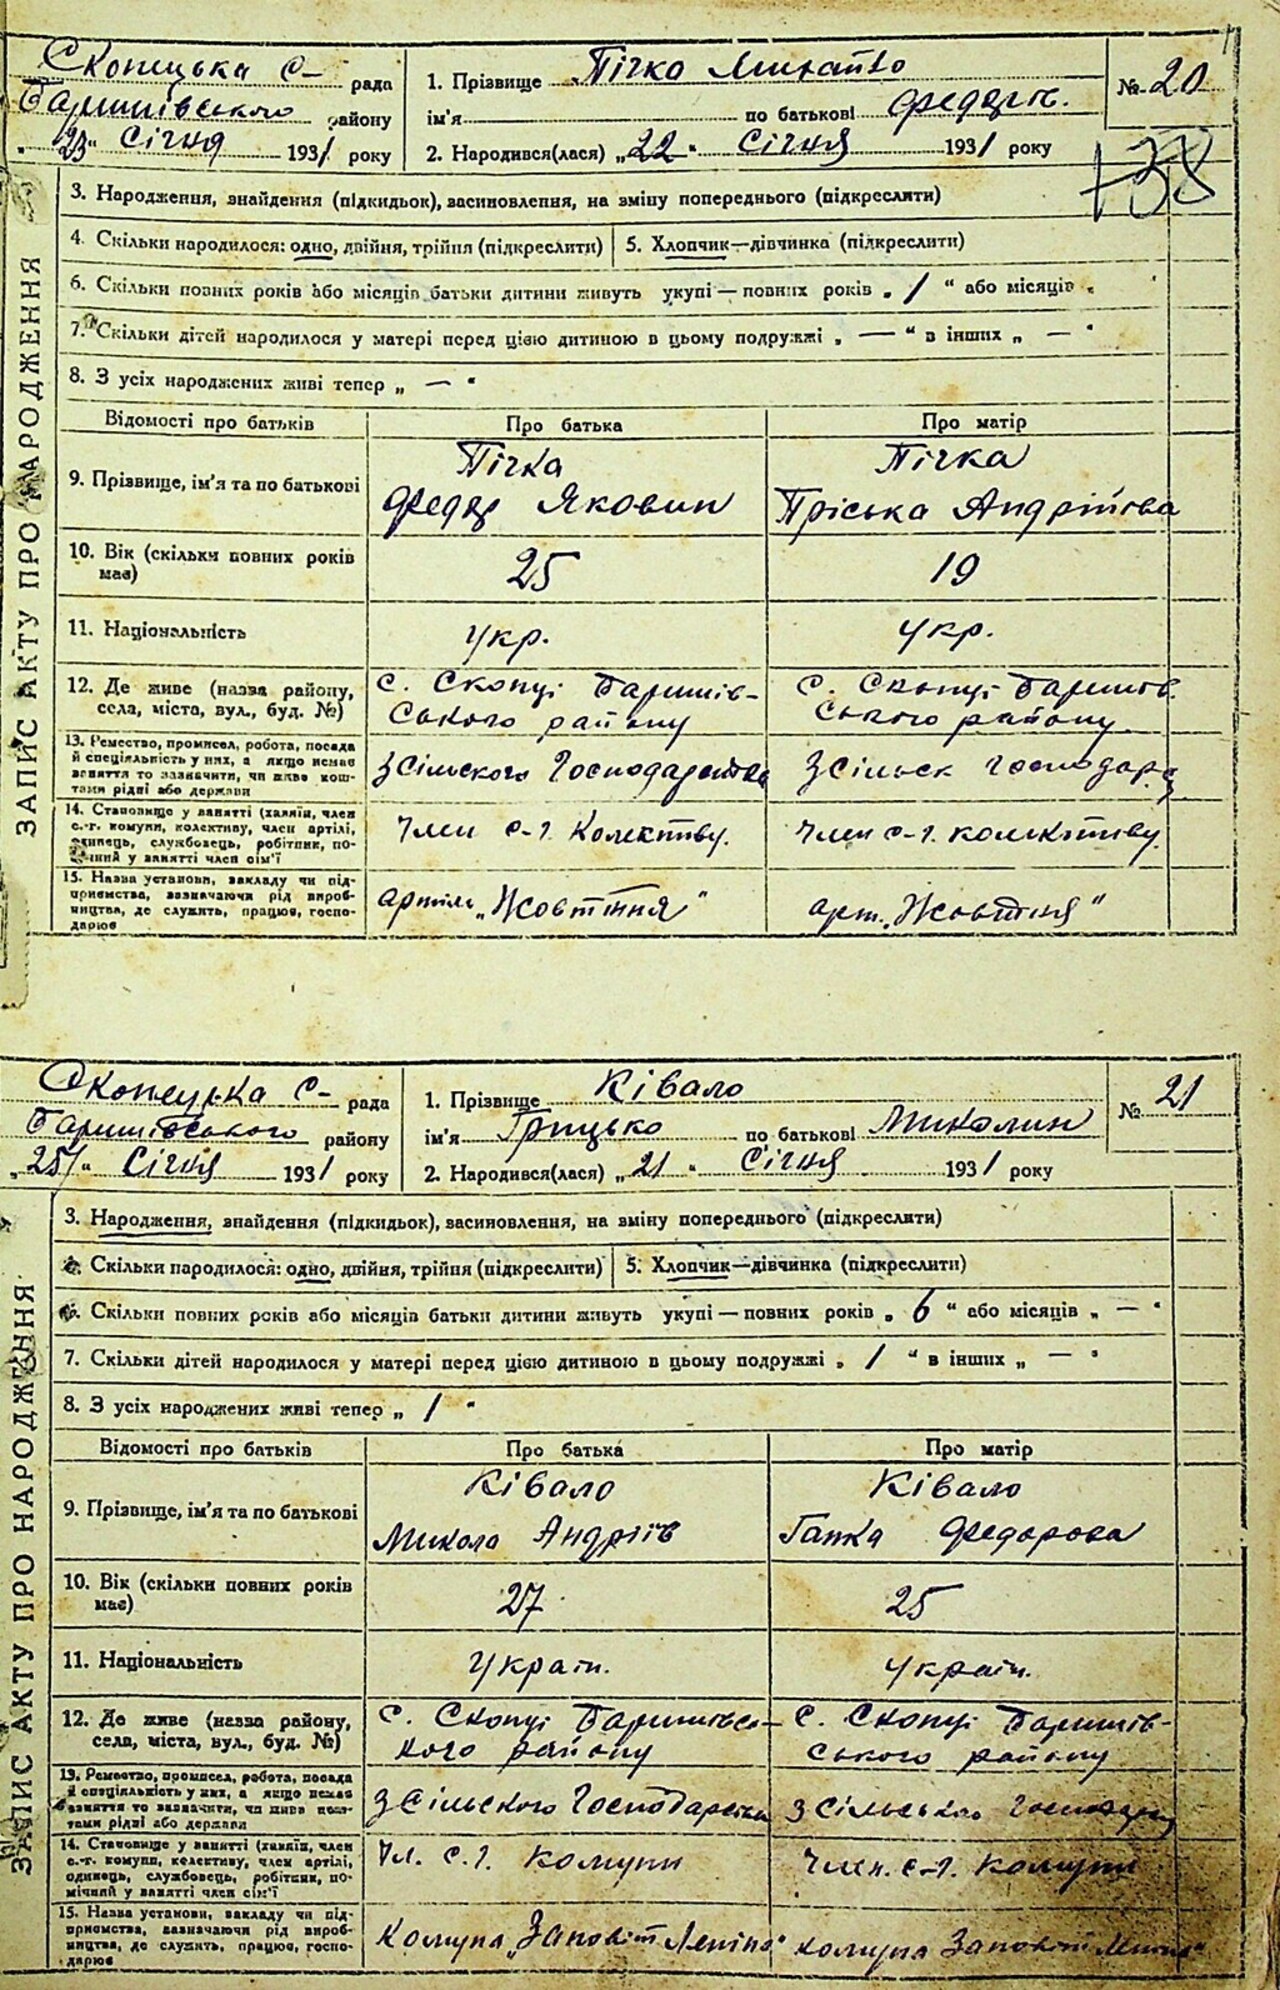 Скопецька с- рада
Баришівського району
"23" Січня 1931 року
1. Прізвище Пічко Михайло
ім'я по батькові Федорів.
2. Народився(лася) „22" Січня 1931 року
№ 20
+38
ЗАПИС АКТУ ПРО НАРОДЖЕННЯ
3. Народження, знайдення (підкидьок), засиновлення, на зміну попереднього (підкреслити)
4. Скільки народилося: одно, двійня, трійня (підкреслити) 5. Хлопчик—дівчинка (підкреслити)
6. Скільки повних років або місяців батьки дитини живуть укупі — повних років „ 1 " або місяців „
7. Скільки дітей народилося у матері перед цією дитиною в цьому подружжі „ — " в інших „ — "
8. З усіх народжених живі тепер „ — "
Відомості про батьків Про батька Про матір
9. Прізвище, ім'я та по батькові Пічка Федір Яковин Пічка Пріська Андрійова
10. Вік (скільки повних років має) 25 19
11. Національність Укр. Укр.
12. Де живе (назва району, села, міста, вул., буд. №) с. Скопці Баришів-ського району с. Скопці Баришів-ського району
13. Ремество, промисел, робота, посада й спеціяльність у них, а якщо немає заняття то зазначити, чи живе коштами рідні або держави З Сільского Господарства З Сільск Господар.
14. Становище у занятті (хазяїн, член с.-г. комуни, колективу, член артілі, одинець, службовець, робітник, помічний у занятті член сім'ї Член с-г. Колективу. Член с-г. колективу.
15. Назва установи, закладу чи підприємства, зазначаючи рід виробництва, де служить, працює, господарює артіль „Жовтння" арт. „Жовтня"
Скопецька с- рада
Баришівського району
"25" Січня 1931 року
1. Прізвище Ківало
ім'я Грицько по батькові Миколин
2. Народився(лася) „21" Січня 1931 року
№ 21
ЗАПИС АКТУ ПРО НАРОДЖЕННЯ
3. Народження, знайдення (підкидьок), засиновлення, на зміну попереднього (підкреслити)
Скільки народилося: одно, двійня, трійня (підкреслити) 5. Хлопчик—дівчинка (підкреслити)
Скільки повних років або місяців батьки дитини живуть укупі — повних років „ 6 " або місяців „ — "
7. Скільки дітей народилося у матері перед цією дитиною в цьому подружжі „ 1 " в інших „ — "
8. З усіх народжених живі тепер „ 1 "
Відомості про батьків Про батька Про матір
9. Прізвище, ім'я та по батькові Ківало Микола Андріїв Ківало Ганка Федорова
10. Вік (скільки повних років має) 27 25
11. Національність Україн. Україн.
12. Де живе (назва району, села, міста, вул., буд. №) с. Скопці Баришівсь-кого району с. Скопці Баришів-ського району
13. Ремество, промисел, робота, посада й спеціяльність у них, а якщо немає заняття то зазначити, чи живе коштами рідні або держави З Сільского Господарства З Сільського Господар
14. Становище у занятті (хазяїн, член с.-г. комуни, колективу, член артілі, одинець, службовець, робітник, помічний у занятті член сім'ї Чл. с.г. комуни Член. с-г. комуни
15. Назва установи, закладу чи підприємства, зазначаючи рід виробництва, де служить, працює, господарює Комуна „Заповіт Леніна" комуна Заповіт Леніна"